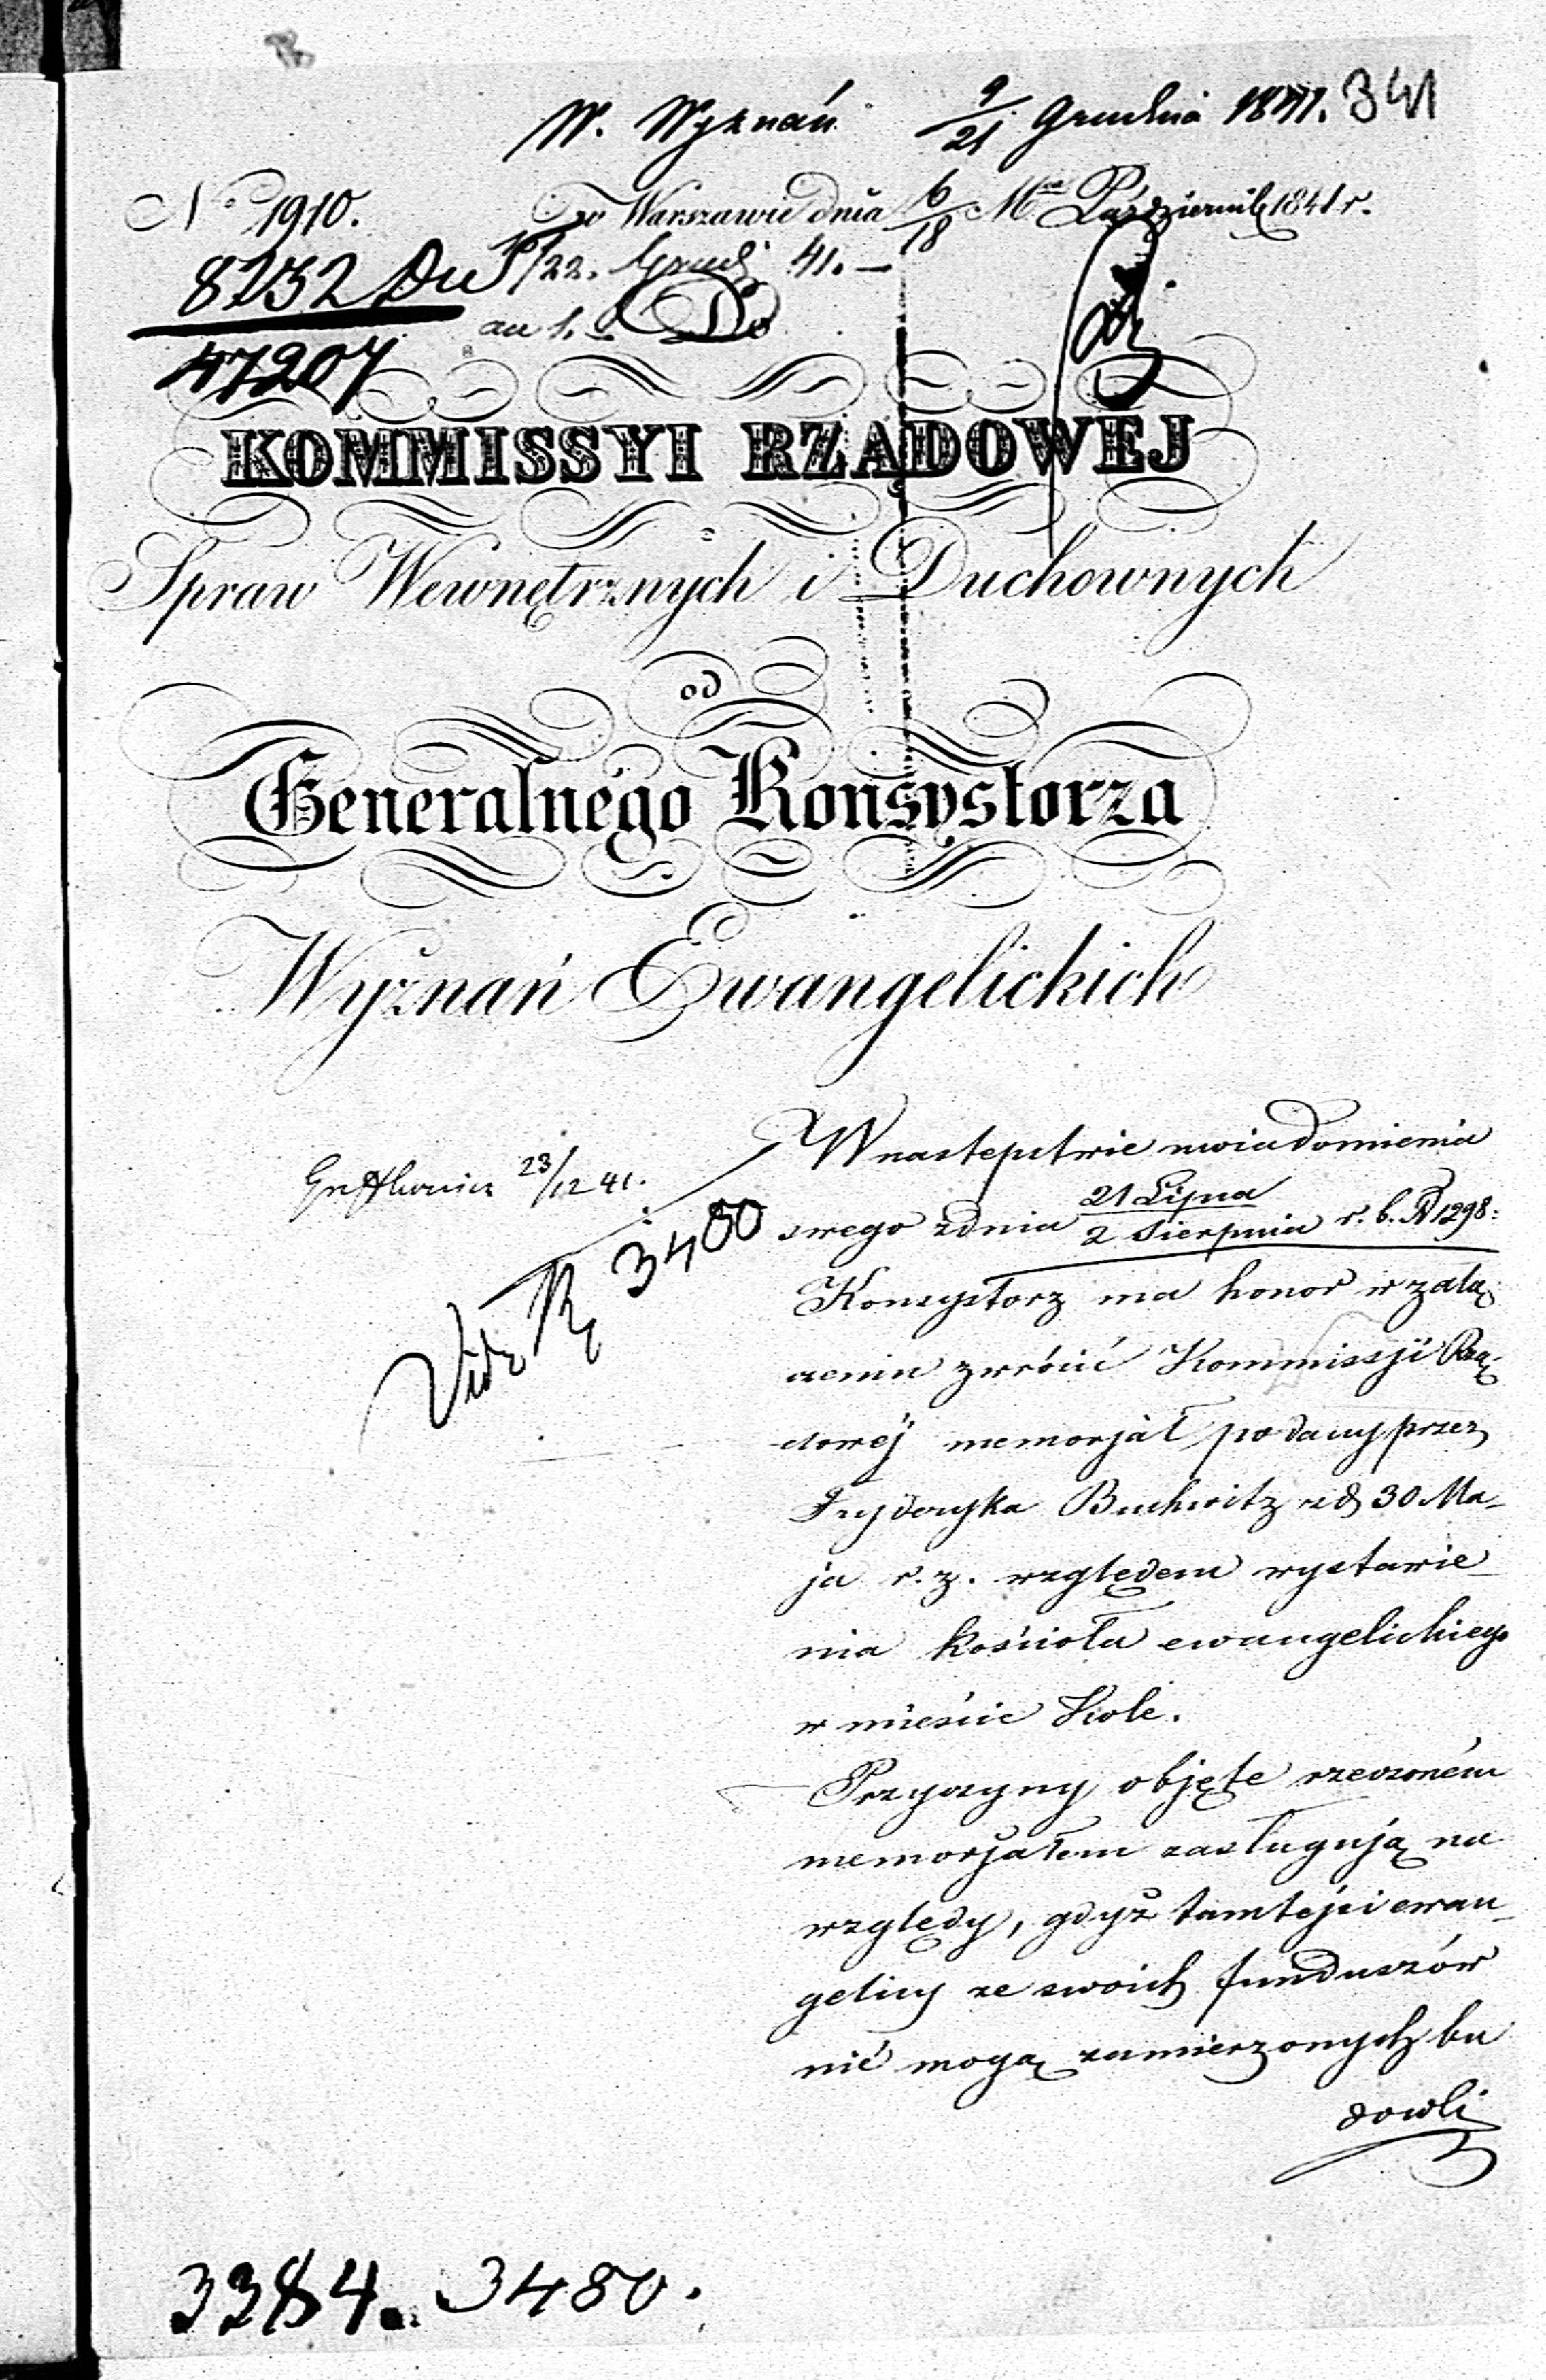 W. Wyznań 9/21 Grudnia 1841. 341
No 1910. w Warszawie dnia 6/18 Mca Październik 1841 r.
8232 Du 10/22. Grud 41. –
47207 an 1. – Do
KOMMISSYI RZĄDOWÉJ
Spraw Wewnętrznych i Duchownych
od
Generalnégo Konsystorza
Wyznań Ewangelickich
W nastepstwie uwiadomienia
23/12 41.
swego z dnia 21 Lipca / 2 Sierpnia r. b. N 1298:
Vide N 3480
Konsystorz ma honor w załą-
czeniu zwrócić Kommissji Rzą-
dowéj memorjał podany przez
Fryderyka Buchwitz z d. 30 Ma-
ja r. z. względem wystawie-
nia kościoła ewangelickiego
w mieście Kole.
Przyczyny objęte rzeczoném
memorjałem zasługują na
względy, gdyż tamtéjsi ewan-
gelicy ze swoich funduszów
nié mogą zamierzonych bu
dowli
3384. 3480.